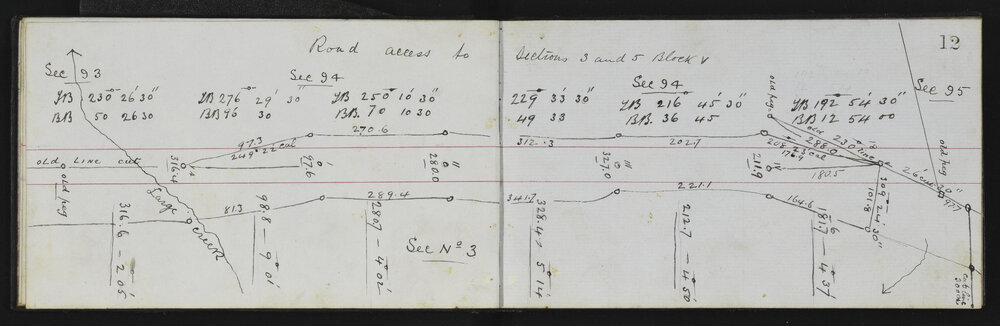 12
Road access to Sections 3 and 5 Block V
Sec 93
Sec 94
Sec 94
Sec 95
FB 230° 26' 30"
BB 50 26 30
FB 276° 29' 30"
BB 96 30
FB 250° 10' 30"
BB. 70 10 30
229° 33' 30"
49 33
FB 216° 45' 30"
BB. 36 45
FB 192° 54' 30"
BB 12 54 00
old peg
97.3
249° 22' cal
270.6
312.3
202.7
old
230
line
288.0
208° 23' cal
176.9
180.5
old peg
old line cut
316.4
97.6
280.0
327.0
211.9
309° 24' 30"
101.8
26
cut
30"
297.7
old peg
Large
creek
81.3
289.4
341.7
221.1
164.6
316.6 — 2° 05'
98.8 — 9° 01'
280.7 — 4° 02'
Sec No 3
328.4 — 5° 14'
212.7 — 4° 50'
181.7 — 4° 37'
6
cut line